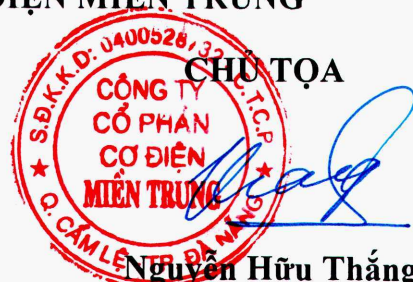 ĐIỆN MIỀN TRUNG
CHỦ TỌA
S.Đ.K.K.D: 0400528732 C.T.C.P
CÔNG TY
CỔ PHẦN
CƠ ĐIỆN
MIỀN TRUNG
Q. CẨM LỆ TP. ĐÀ NẴNG
Nguyễn Hữu Thắng